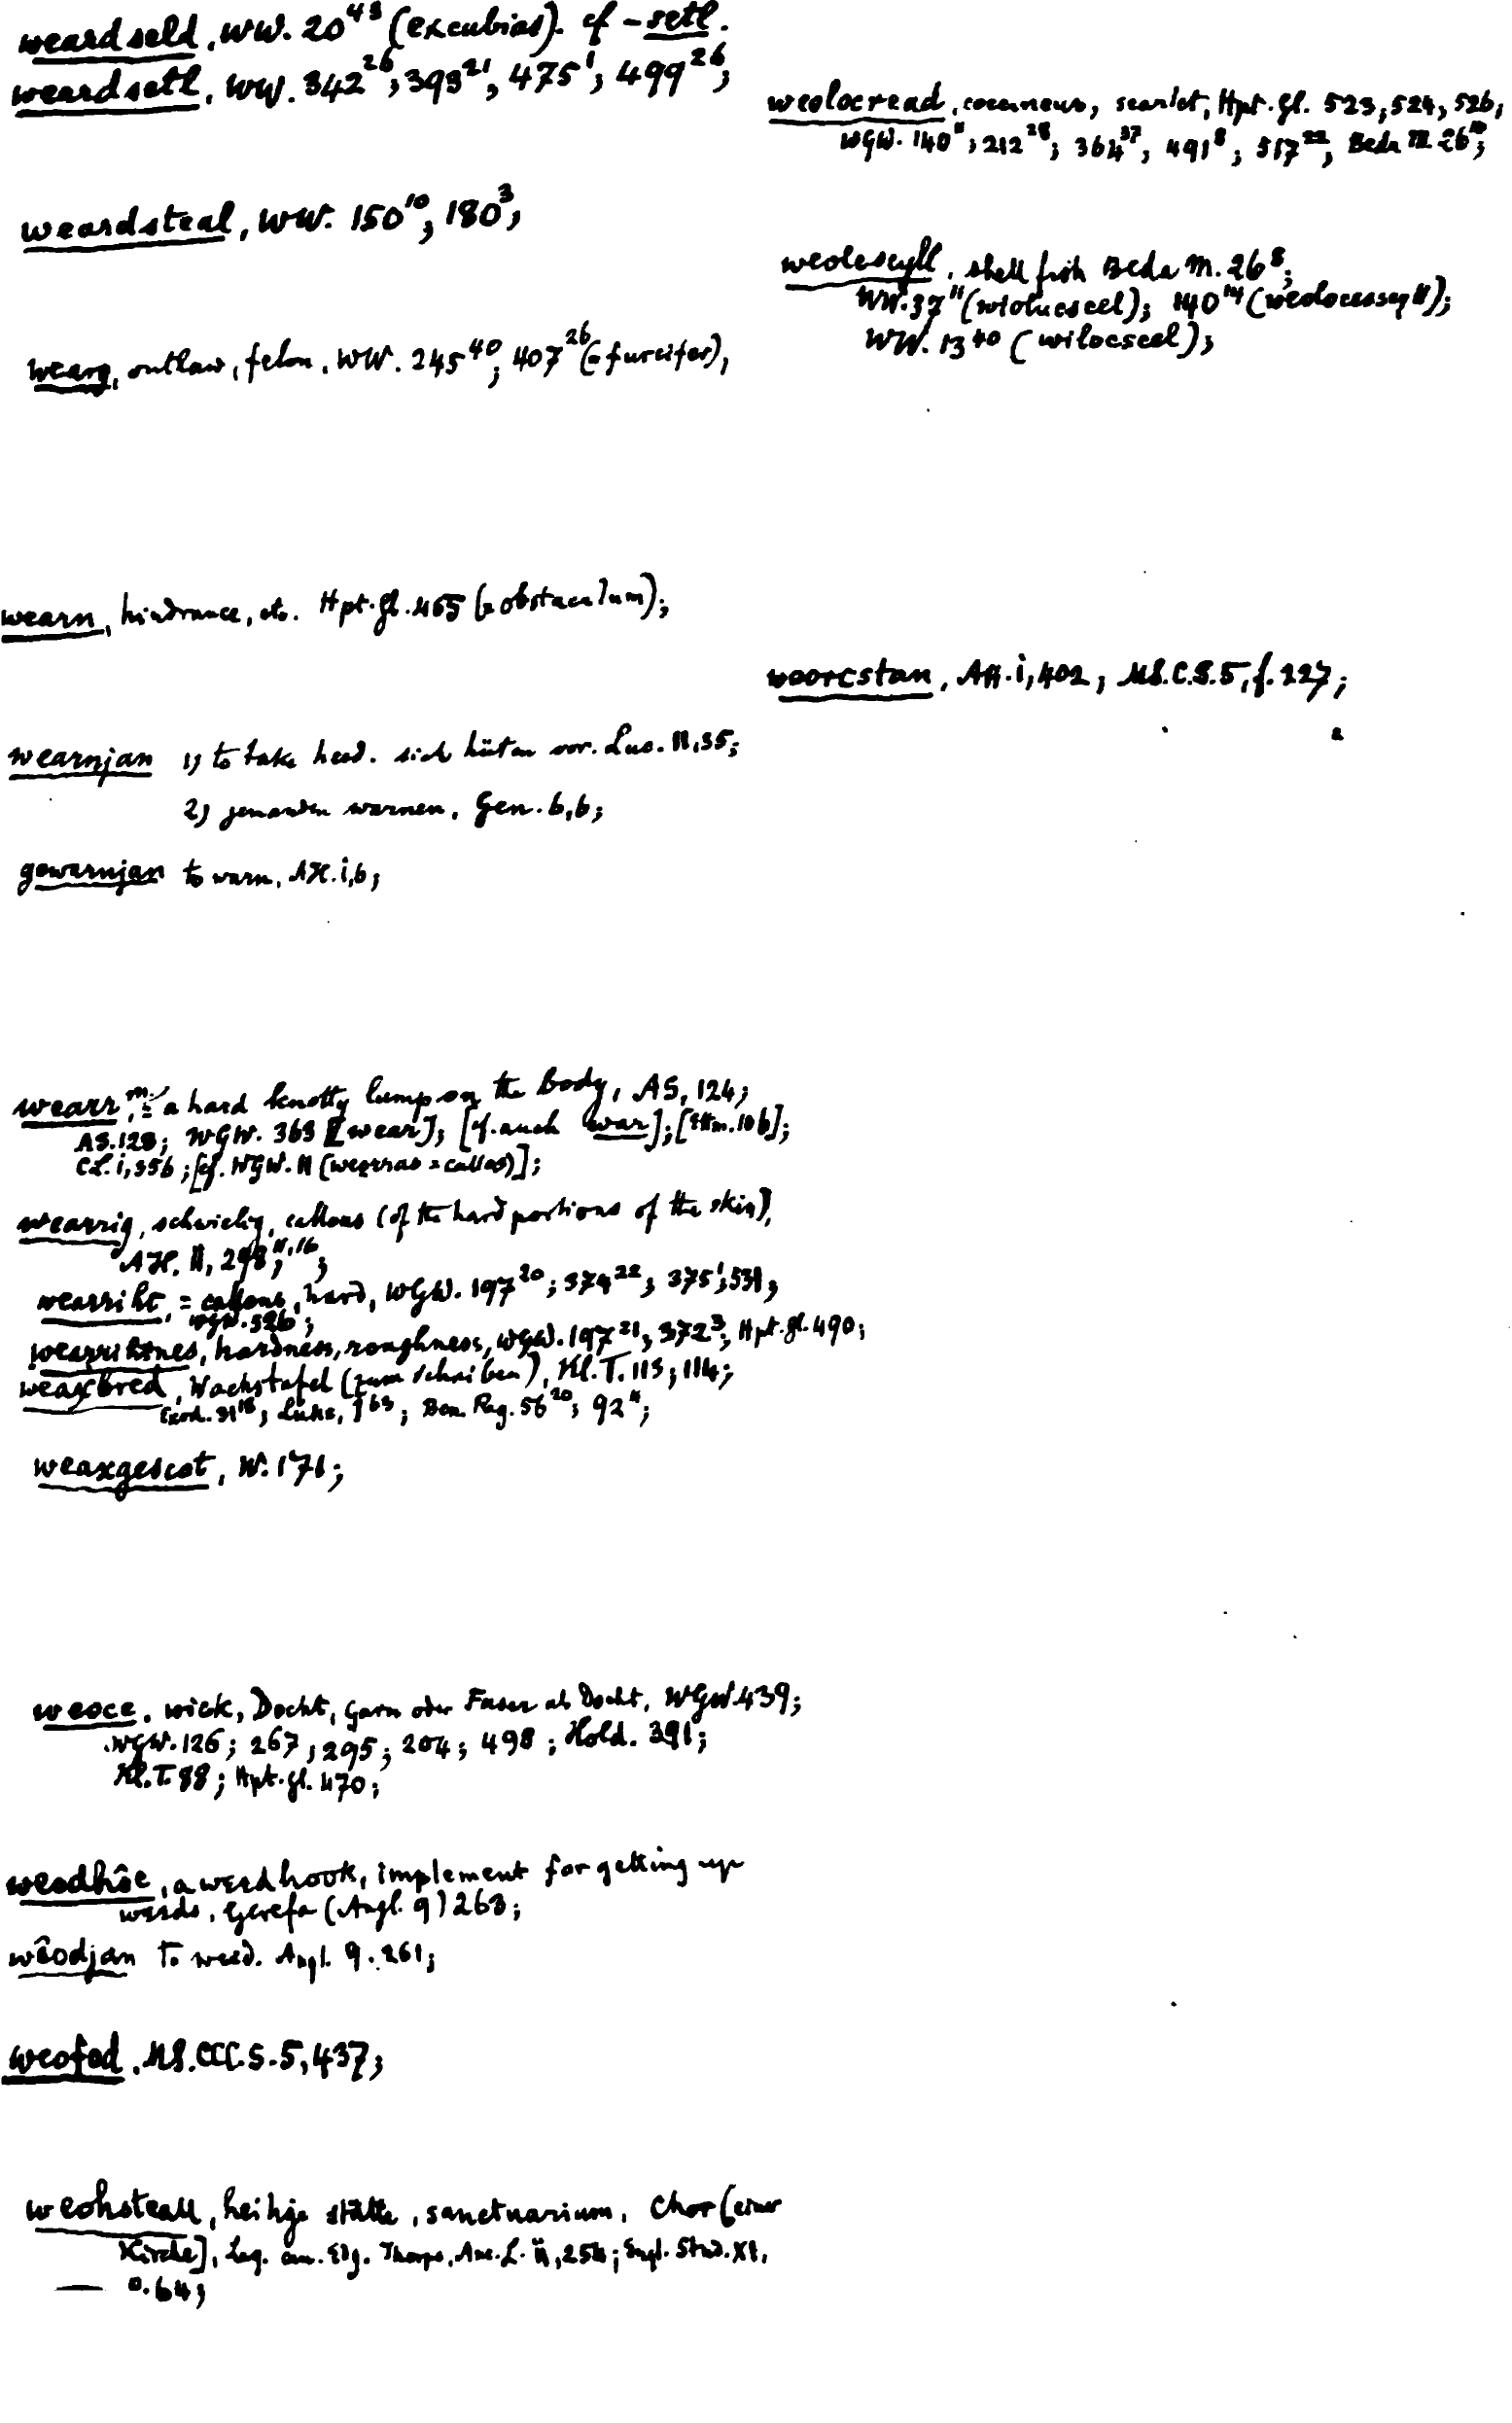 weardseld, WW. 20⁴³ (excubias). cf -setl.
weardsetl, WW. 342²⁶, 393²¹, 475¹, 499²⁶;
weardsteal, WW. 150¹⁰, 180³,
wearg, outlaw, felon, WW. 245⁴⁰, 407²⁶ (= furcifer),
wearn, hindrance, etc. Hpt. gl. 465 (= obstaculum);
wearnjan 1) to take heed. sich hüten vor. Luc. 11,35;
2) jemanden warnen, Gen. 6,6;
gewarnjan to warn, AH. i,6;
wearr, m. = a hard knotty lump on the Body, AS, 124;
AS. 128; WGW. 363 [wear]; [cf. auch war]; [Ettm. 106];
CL. i, 356; [cf. WGW. 11 (weqrras = callos)];
wearrig, schwielig, callous (of the hard portions of the skin),
AH. II, 298, 11,16;
wearriht, = callous, hard, WGW. 197²⁰; 374²²; 375¹, 531,
WGW. 526;
wearrihtnes, hardness, roughness, WGW. 197²¹, 372³, Hpt. gl. 490;
weaxbred, Wachstafel (zum schreiben), Kl. T. 113; 114;
Exod. 31¹⁸; Luke, 1⁶³; Ben. Reg. 56²⁰; 92⁴;
weaxgescot, W. 171;
weoce, wick, Docht, Garn oder Faser als Docht, WGW. 439;
WGW. 126; 267, 295; 204; 498; Hold. 391;
Kl. T. 88; Hpt. gl. 470;
weodhôc, a weedhook, implement for getting up
weeds, Gerefa (Angl. 9) 263;
wêodjan to weed. Angl. 9. 261;
weofod, MS. CCC. S. 5, 437;
weohsteall, heilige stätte, sanctuarium, Chor [einer
Kirche], Leg. can. Edg. Thorpe, Anc. L. ii, 254; Engl. Stud. XI,
— 0. 64;
weolocread, coccineus, scarlet, Hpt. gl. 523, 524, 526,
WGW. 140¹¹, 212²⁸; 364³⁷, 491⁸; 517²², Beda M. 26¹⁰;
weolescyll, shell fish Beda M. 26⁸;
WW. 37¹¹ (wiolucscel); 140¹⁴ (weolocesscyll);
WW. 13⁴⁰ (wilocscel);
weorcstan, AH. i, 402, MS. C. S. 5, f. 227;